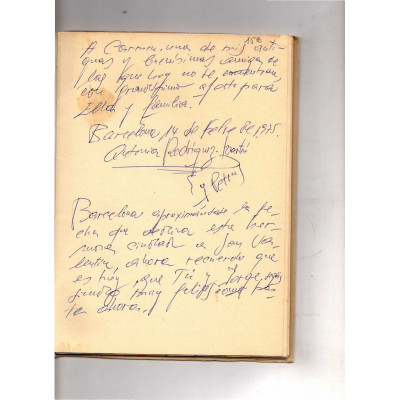 15€
A Carmen, una de mis anti-
guas y buenísimas amigas de
las que hoy no se encuentran,
con grandísimo afecto para
Ella y familia.
Barcelona 14 de Febre de 1975.
Antonia Rodríguez
y
Barcelona aproximándose la fe-
cha que
esta her-
mosa ciudad a San Va-
lentín, ahora recuerdo que
es hoy, que Tú y Jorge
siendo muy felices como has-
ta ahora.